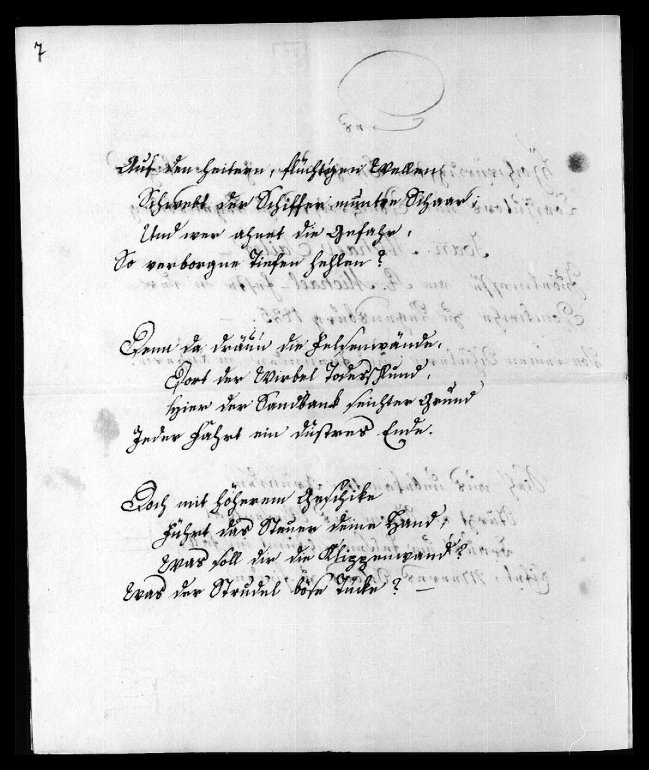 7
Auf den heitern, flüchtigen Wellen,
Schwebt der Schiffer muntre Schaar;
Und wer ahnet die Gefahr,
So verborgne Tiefen hehlen?
Denn da dräün die Felsenwände,
Dort der Wirbel Todesschlund,
Hier der Sandbank seichter Grund
Jeder Fahrt ein düstres Ende.
Doch mit höherem Geschike
Führt das Steuer deine Hand,
Was soll dir die Klippenwand?
Was der Strudel böse Tücke? –